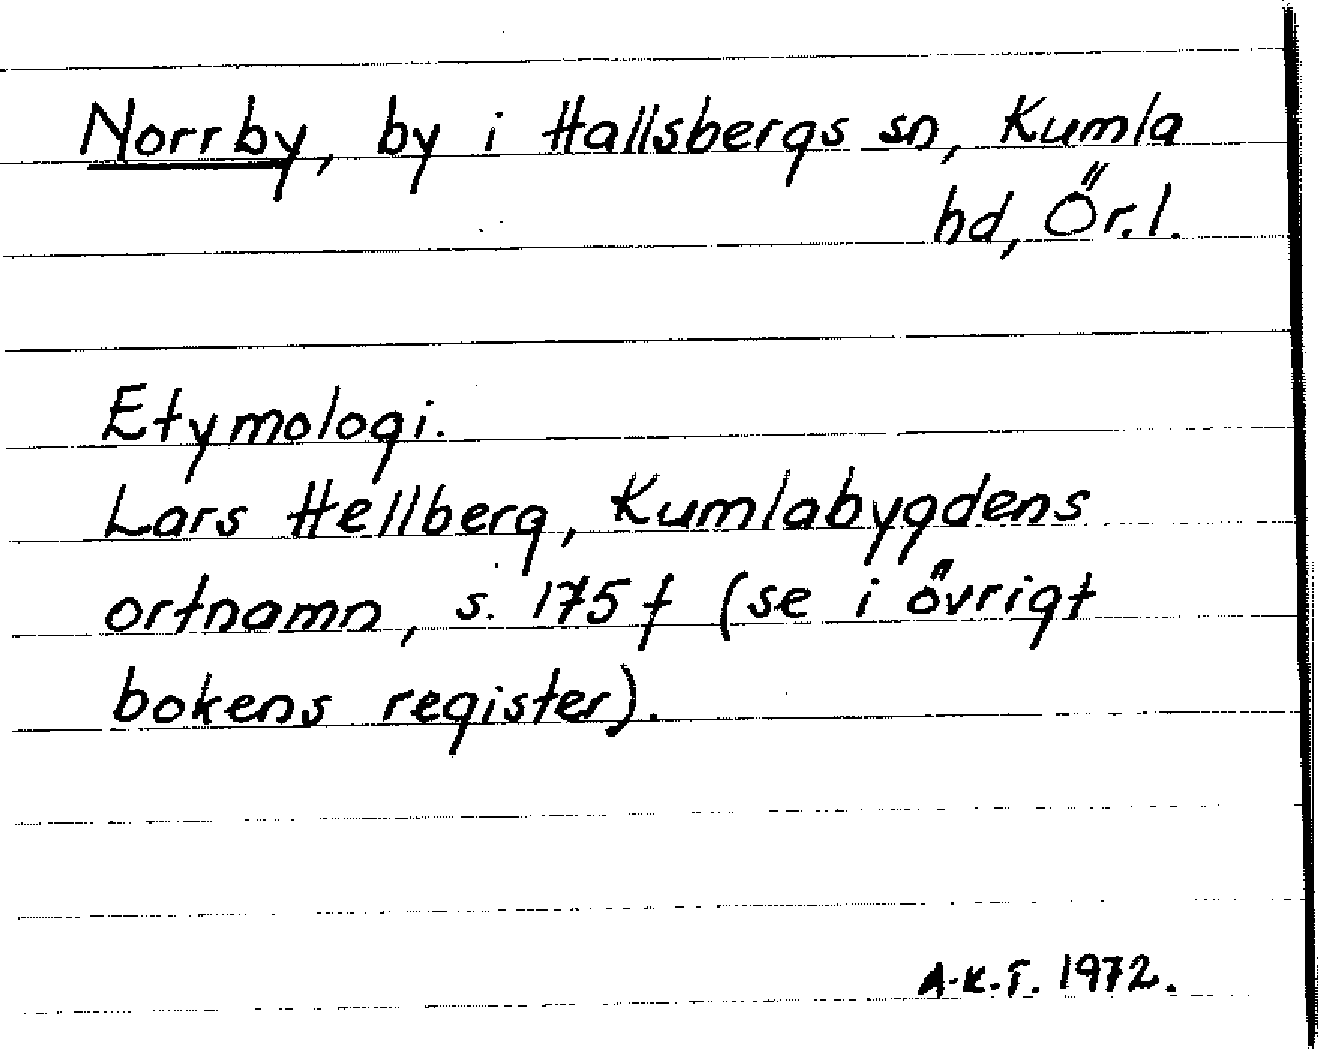 Norrby, by i Hallsbergs sn, Kumla
hd, Ör.l.
Etymologi.
Lars Hellberg, Kumlabygdens
ortnamn, s. 175 f (se i övrigt
bokens register).
A-K.T. 1972.